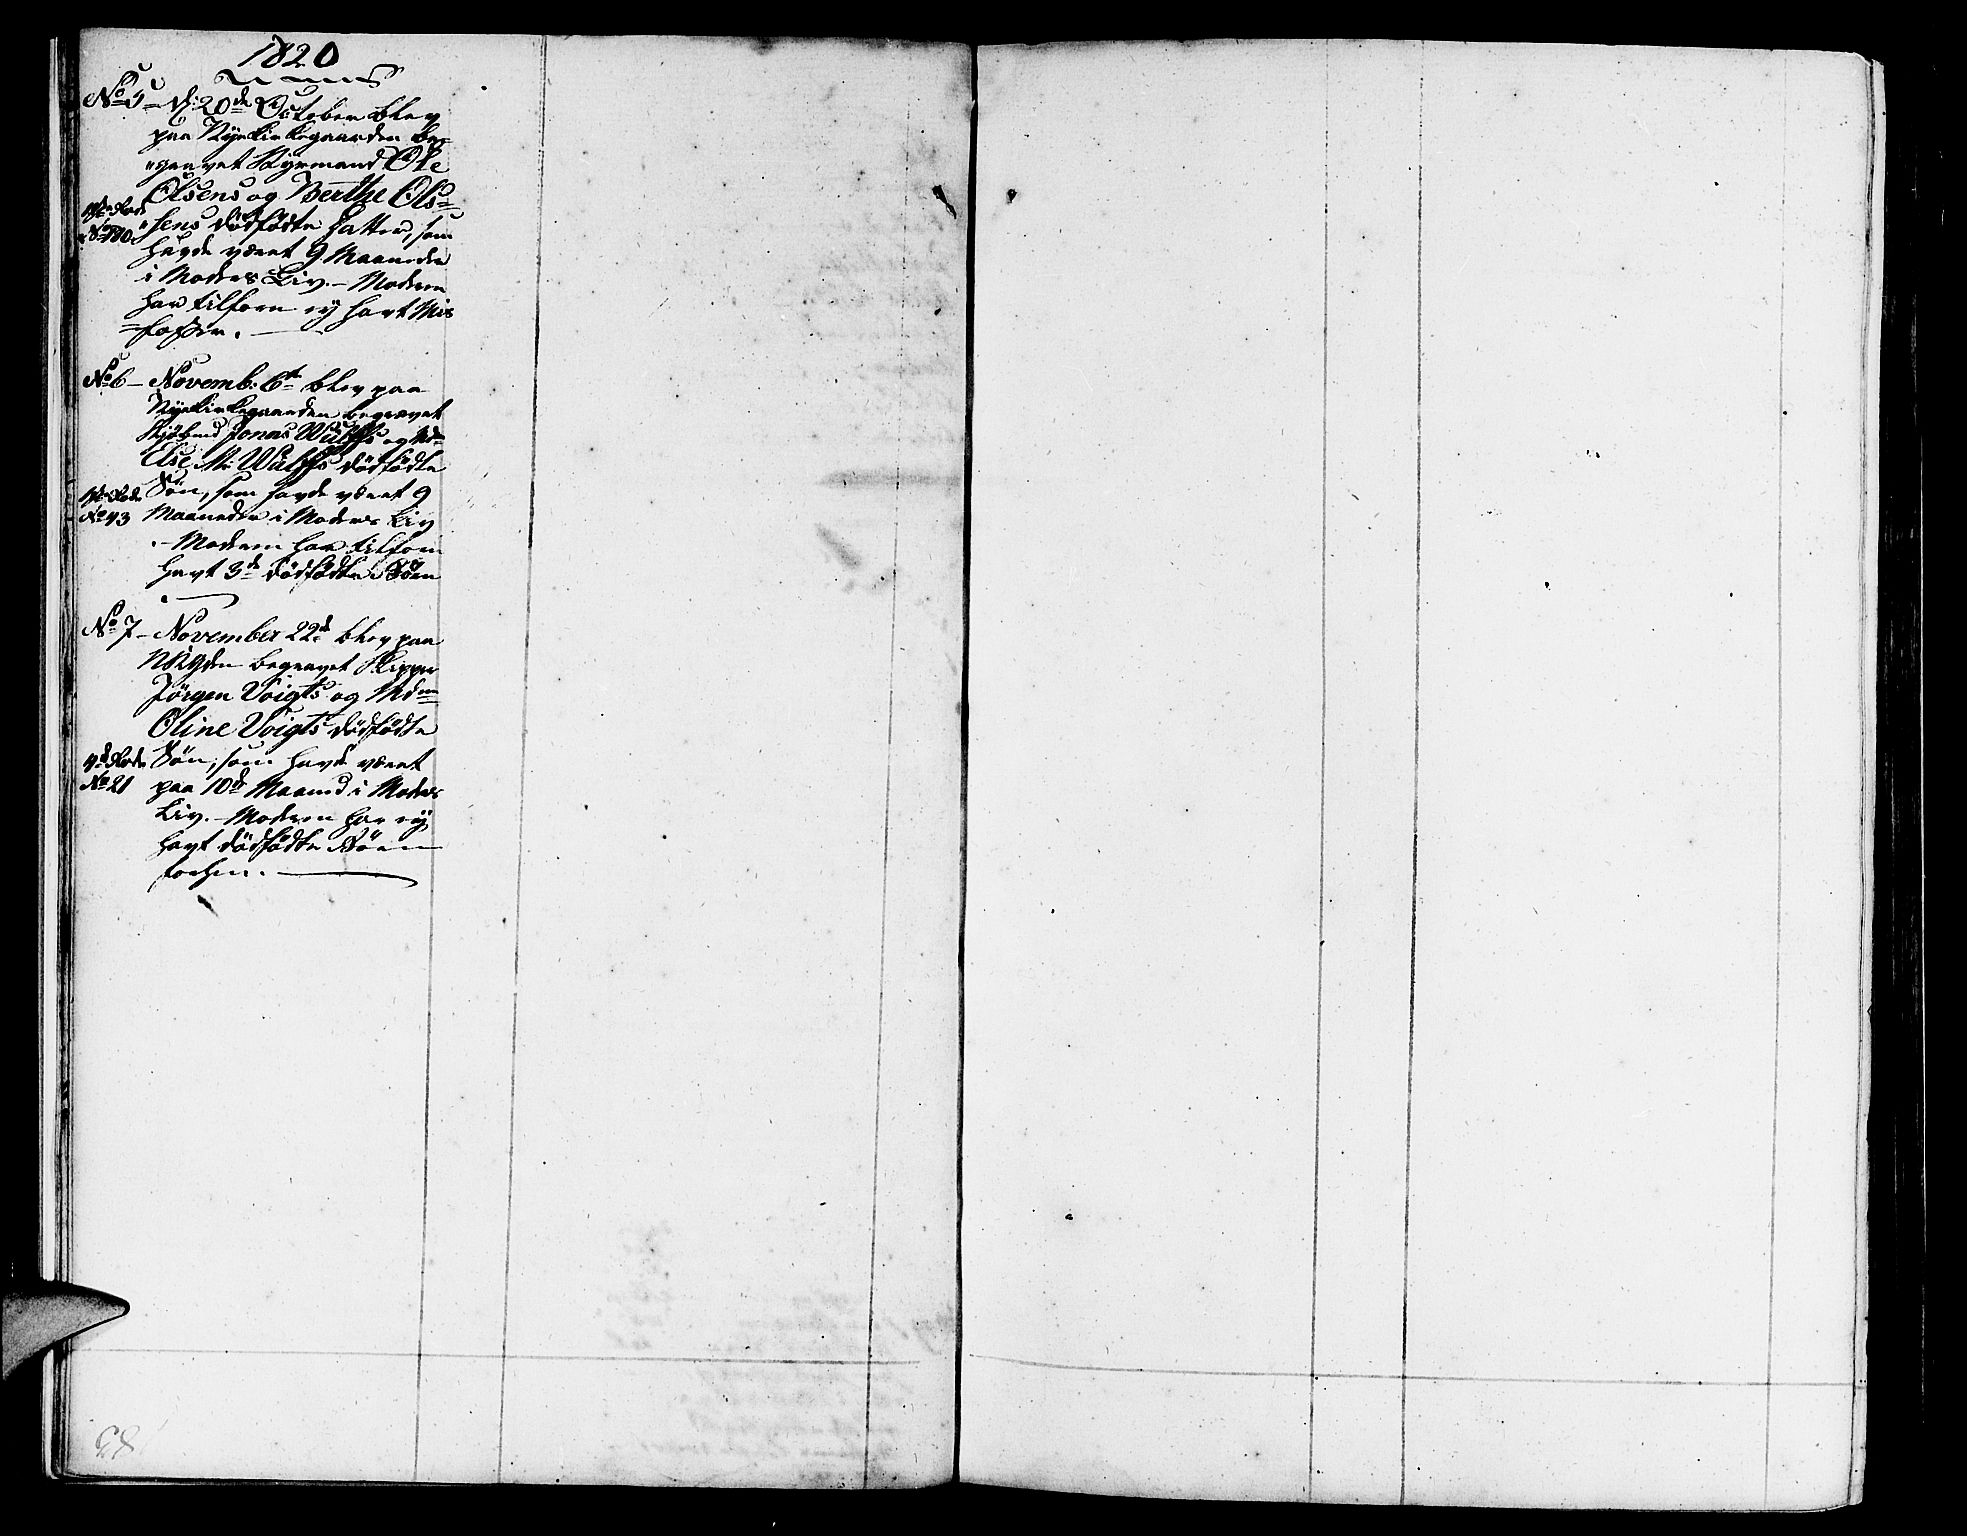 1820
No 5 - d: 20de October blev
paa Nyekirkegaarden be-
"gravet Styrmand Ole
Olsens og Berthe Ols=
Rode
No 110 "sens dödfödte Datter, som
havde været 9 Maaneder
i Moders Liv. - Moderen
har tilforn ey havt Mis
=fostre.
No 6 - Novemb: 6te blev paa
Nyekirkegaarden begravet
Jonas Wulffs og
Else M: Wulffs dödfödte
Rode Sön, som havde været 9
No 43 Maaneder i Moders Liv
. - Moderen har tilforn
havt 3de dödfödte Börn
No 7 - November 22de blev paa
NKgden begravet Skipper
Jörgen Voigts og Mdm
Oline Voigts dödfödte
4de Rode Sön, som havde været
No 21 paa 10de Maaned i Moders
Liv. - Moderen har ey
havt dödfödte Börn
forhen.